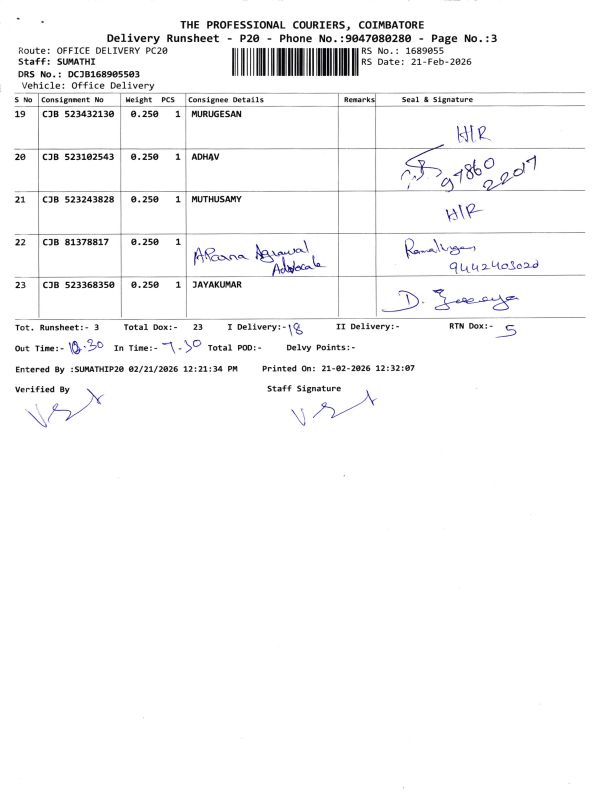 THE PROFESSIONAL COURIERS, COIMBATORE
Delivery Runsheet - P20 - Phone No.:9047080280 - Page No.:3
Route: OFFICE DELIVERY PC20 RS No.: 1689055
Staff: SUMATHI RS Date: 21-Feb-2026
DRS No.: DCJB168905503
Vehicle: Office Delivery
S No Consignment No Weight PCS Consignee Details Remarks Seal & Signature
19 CJB 523432130 0.250 1 MURUGESAN H/R
20 CJB 523102543 0.250 1 ADHAV 97860 22017
21 CJB 523243828 0.250 1 MUTHUSAMY H/R
22 CJB 81378817 0.250 1 Agrawal Advocate 9442403020
23 CJB 523368350 0.250 1 JAYAKUMAR D.
Tot. Runsheet:- 3 Total Dox:- 23 I Delivery:- 18 II Delivery:- RTN Dox:- 5
Out Time:- .30 In Time:- 7.30 Total POD:- Delvy Points:-
Entered By :SUMATHIP20 02/21/2026 12:21:34 PM Printed On: 21-02-2026 12:32:07
Verified By Staff Signature